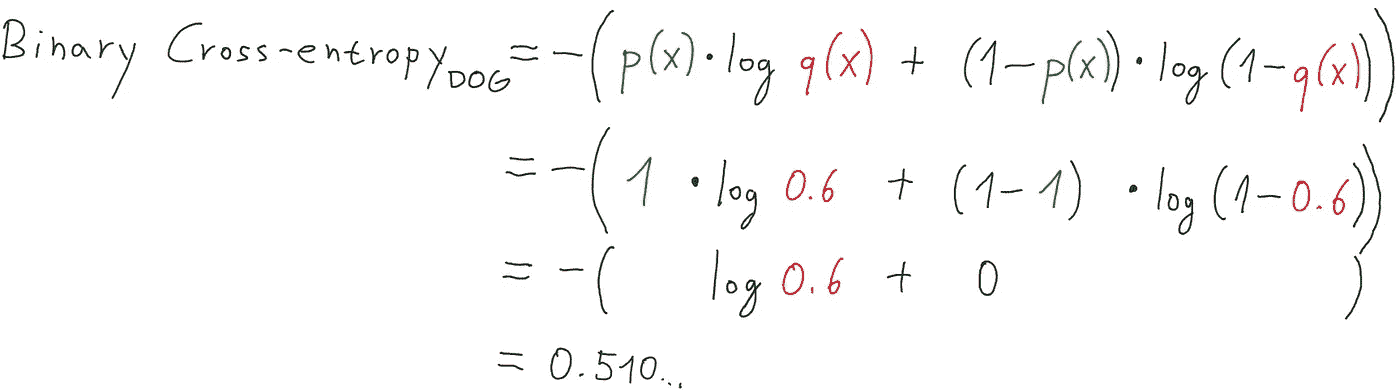 Binary Cross-entropy_DOG = -(p(x)·log q(x) + (1-p(x))·log(1-q(x)))
= -(1 ·log 0.6 + (1-1) ·log(1-0.6))
= -( log 0.6 + 0 )
= 0.510...